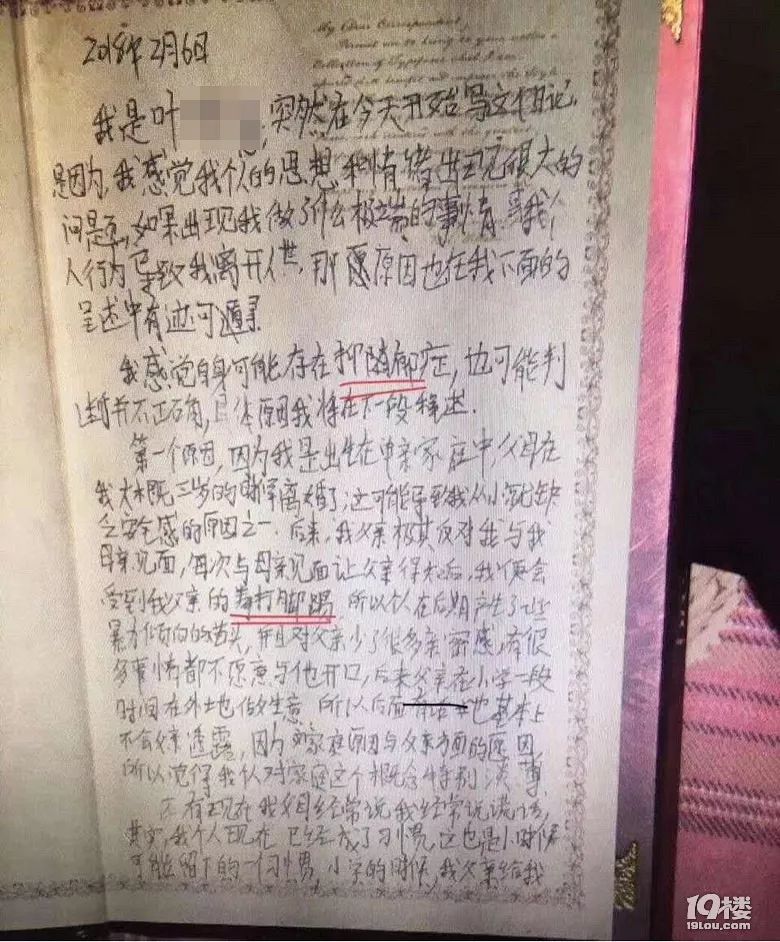 2018年2月6日
My Dear Correspondent,
Permit me to bring to your notice a
Collection of
我是叶 突然在今天开始写这个日记
是因为,我感觉我个人的思想和情绪出现很大的
问题,如果出现我做了什么极端的事情或我个
人行为已导致我离开人世,那愿原因也在我下面的
呈述中有迹可循寻.
我感觉自身可能存在抑随郁症,也可能判
断并不正确,具体原因我将在下一段释述.
第一个原因,因为我是出生在单亲家庭中,父母在
我大概三岁的时候离婚了,这可能导致我从小就缺
乏安全感的原因之一.后来,我父亲极其反对我与我
母亲见面,每次与母亲见面让父亲得知后,我便会
受到我父亲的毒打脚踢 所以个人在后期产生了些
暴力倾向的苗头,并且对父亲少了很多亲密感,有很
多事情都不愿意与他开口,后来父亲在小学一段
时间在外土也做生意 所以后面 也基本上
不会父亲透露,因为家庭原因与父亲方面的原因,
所以觉得我认对家庭这个概念特别淡薄
还有现在我父母经常说我经常说谎话,
其实,我个人现在已经成了习惯,这也是小时候
可能留下的一个习惯,小学的时候,我父亲给我
19楼
19lou.com